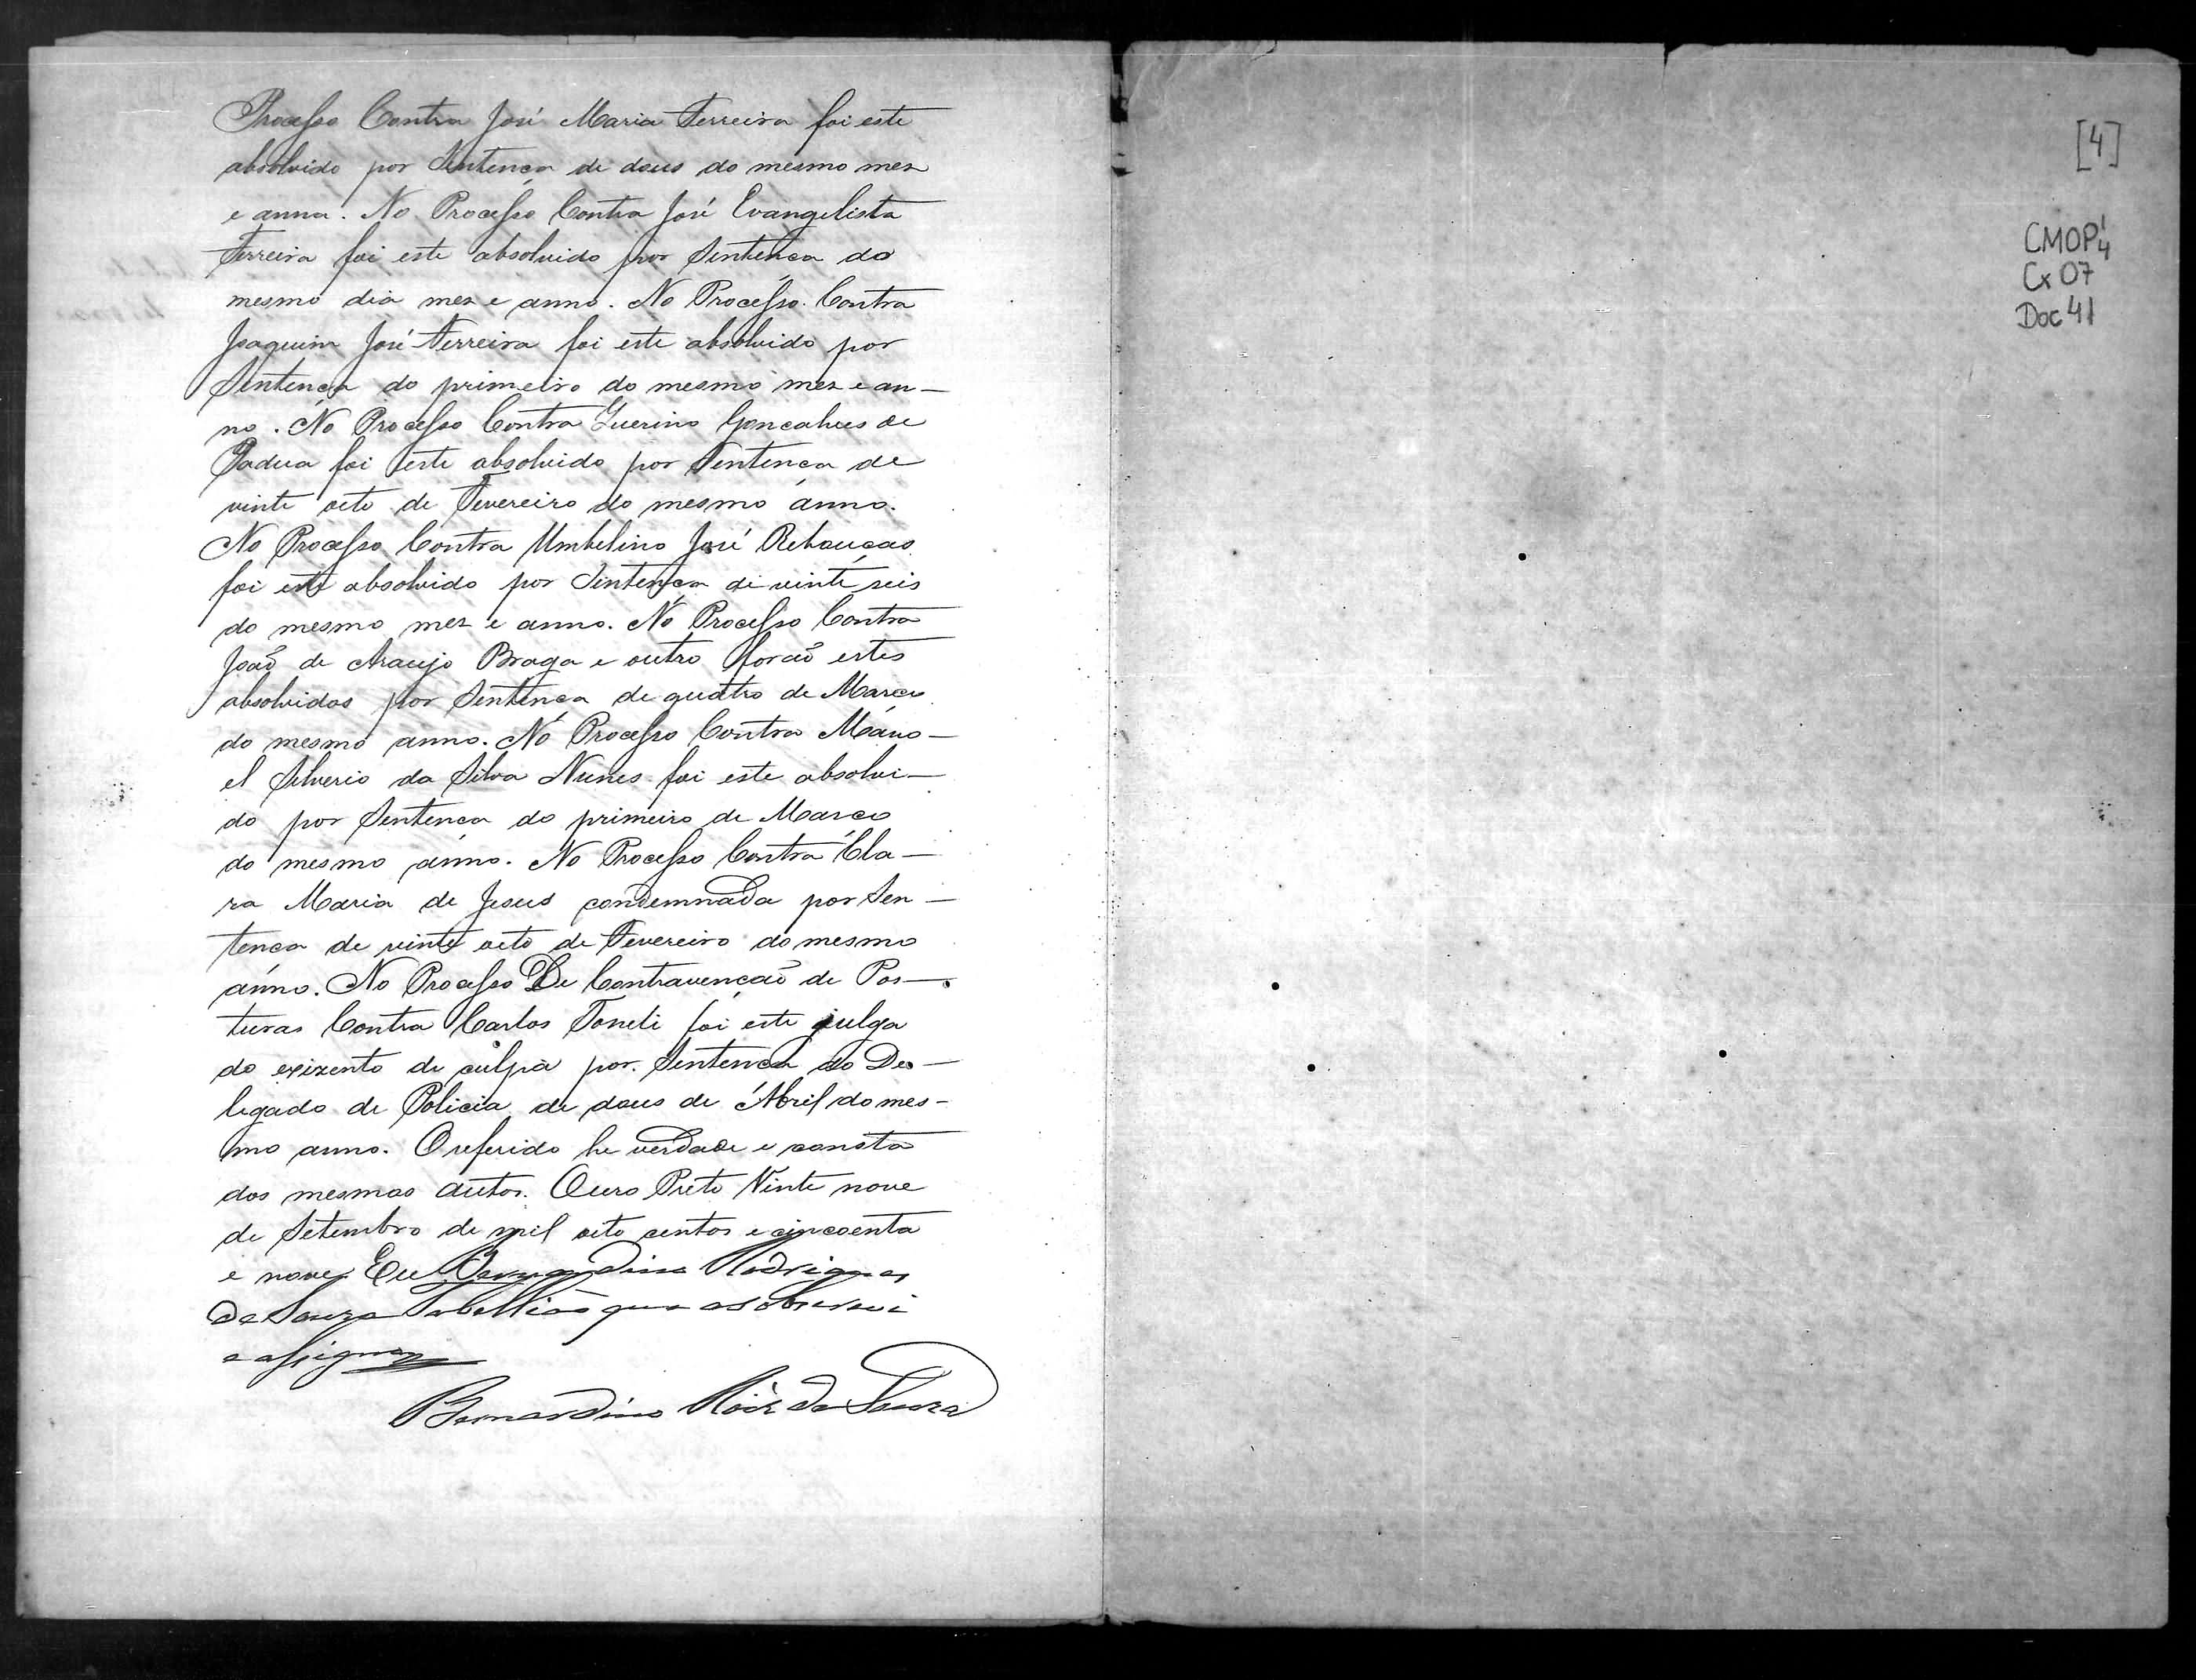 Processo Contra José Maria Ferreira foi este
absolvido por Sentença de dous do mesmo mez
e anno. No Processo Contra José Evangelista
Ferreira foi este absolvido por Sentença do
mesmo dia mez e anno. No Processo Contra
Joaquim José Ferreira foi este absolvido por
Sentença do primeiro do mesmo mez e an-
no. No Processo Contra Guerino Gonçalves de
Padua foi este absolvido por Sentença de
vinte oito de Fevereiro do mesmo anno.
No Processo Contra Umbelino José Rebouças
foi este absolvido por Sentença de vinte seis
do mesmo mez e anno. No Processo Contra
João de Araujo Braga e outro forão estes
absolvidos por Sentença de quatro de Março
do mesmo anno. No Processo Contra Mano-
el Silverio da Silva Nunes foi este absolvi-
do por Sentença do primeiro de Março
do mesmo anno. No Processo Contra Cla-
ra Maria de Jesus condemnada por Sen-
tença de vinte oito de Fevereiro do mesmo
anno. No Processo De Contravenção de Pos-
turas Contra Carlos Toneli foi este julga
do exizento de culpa por Sentença do De-
legado de Policia de dous de Abril do mes-
mo anno. O referido he verdade e consta
dos mesmos autos. Ouro Preto Vinte nove
de Setembro de mil oito centos e cincoenta
e nove. Eu Bernardino Rodrigues
de Souza Tabellião que as
e assignei
Bernardino Roiz de Souza
[4]
CMOP 4
Cx 07
Doc 41